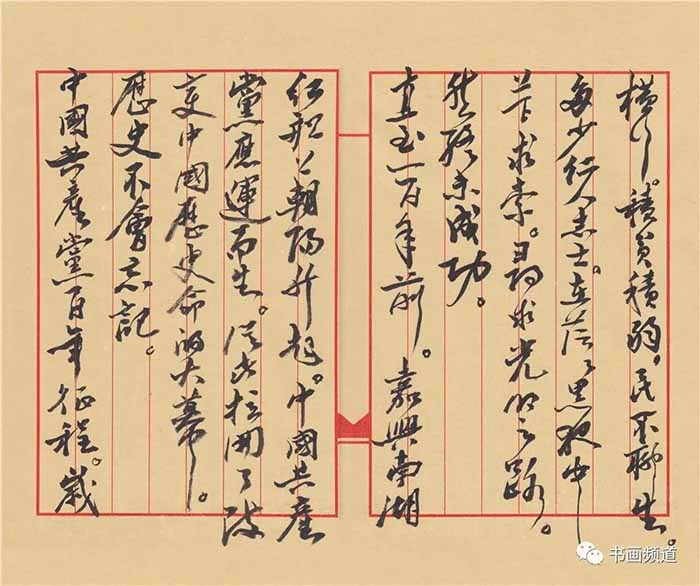 橫行。積貧積弱，民不聊生。
多少仁人志士。在茫々黑夜中
苦求索。尋求光明之路。
然終未成功。
直至一百年前。嘉興南湖
紅船上朝陽升起。中國共產
黨應運而生。從此拉開了改
變中國歷史命的大幕。
歷史不會忘記。
中國共產黨百年征程。歲
书画频道